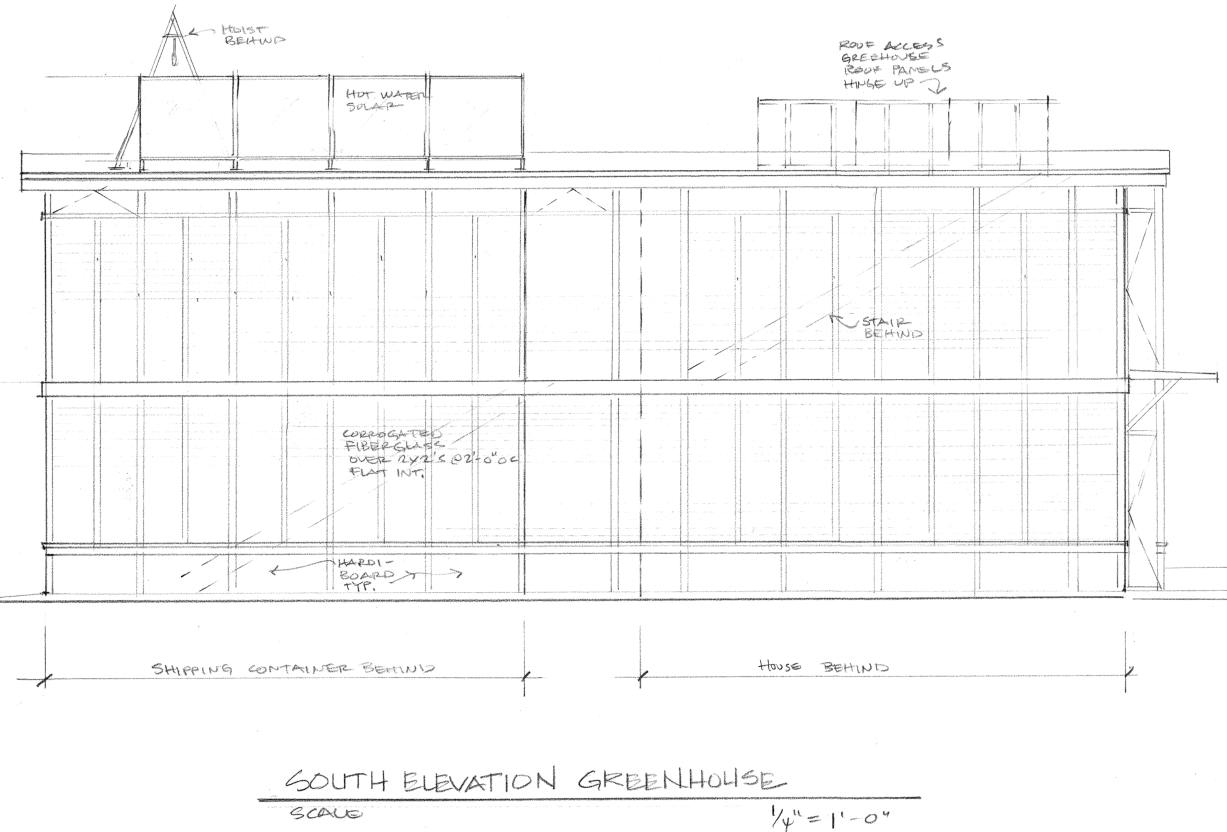 HOIST
BEHIND
ROOF ACCESS
GREEHOUSE
ROOF PANELS
HINGE UP
HOT WATER
SOLAR
STAIR
BEHIND
CORROGATED
FIBERGLASS
OVER 2X2'S @2'-0" OC
FLAT INT.
HARDI-
BOARD
TYP.
SHIPPING CONTAINER BEHIND
HOUSE BEHIND
SOUTH ELEVATION GREENHOUSE
SCALE 1/4" = 1'-0"